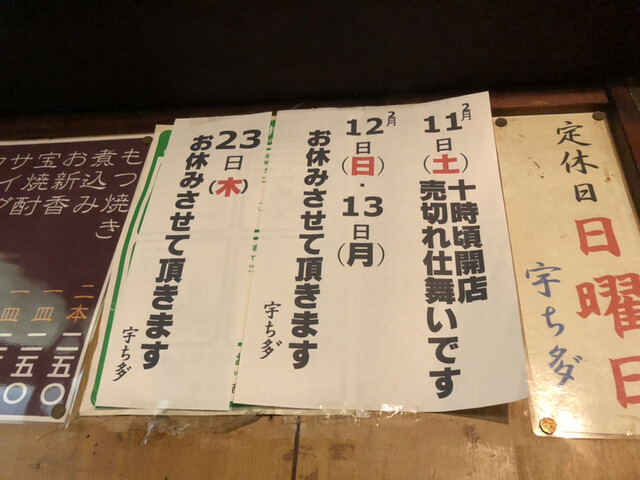 定休日
日曜日
宇ち多゛
2月
11日(土)十時頃開店
売切れ仕舞いです
2月
12日(日)・13日(月)
お休みさせて頂きます
宇ち多゛
23日(木)
お休みさせて頂きます
宇ち多゛
もつ焼き
煮込み
お新香
宝焼酎
二本
一皿
一皿
二五〇
二五〇